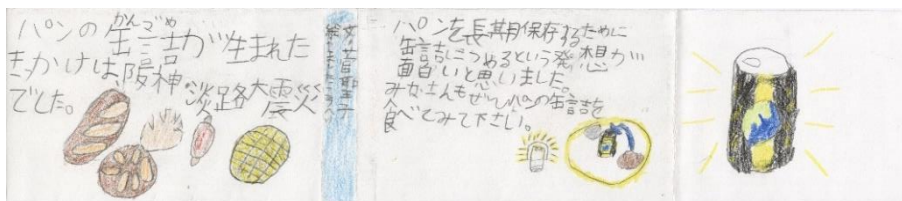 かんづめ
パンの缶詰が生まれた
きっかけは、阪神淡路大震災
でした。
パンを長期保存するために
缶詰につめるという発想が
面白いと思いました。
みなさんもぜひパンの缶詰を
食べてみて下さい。